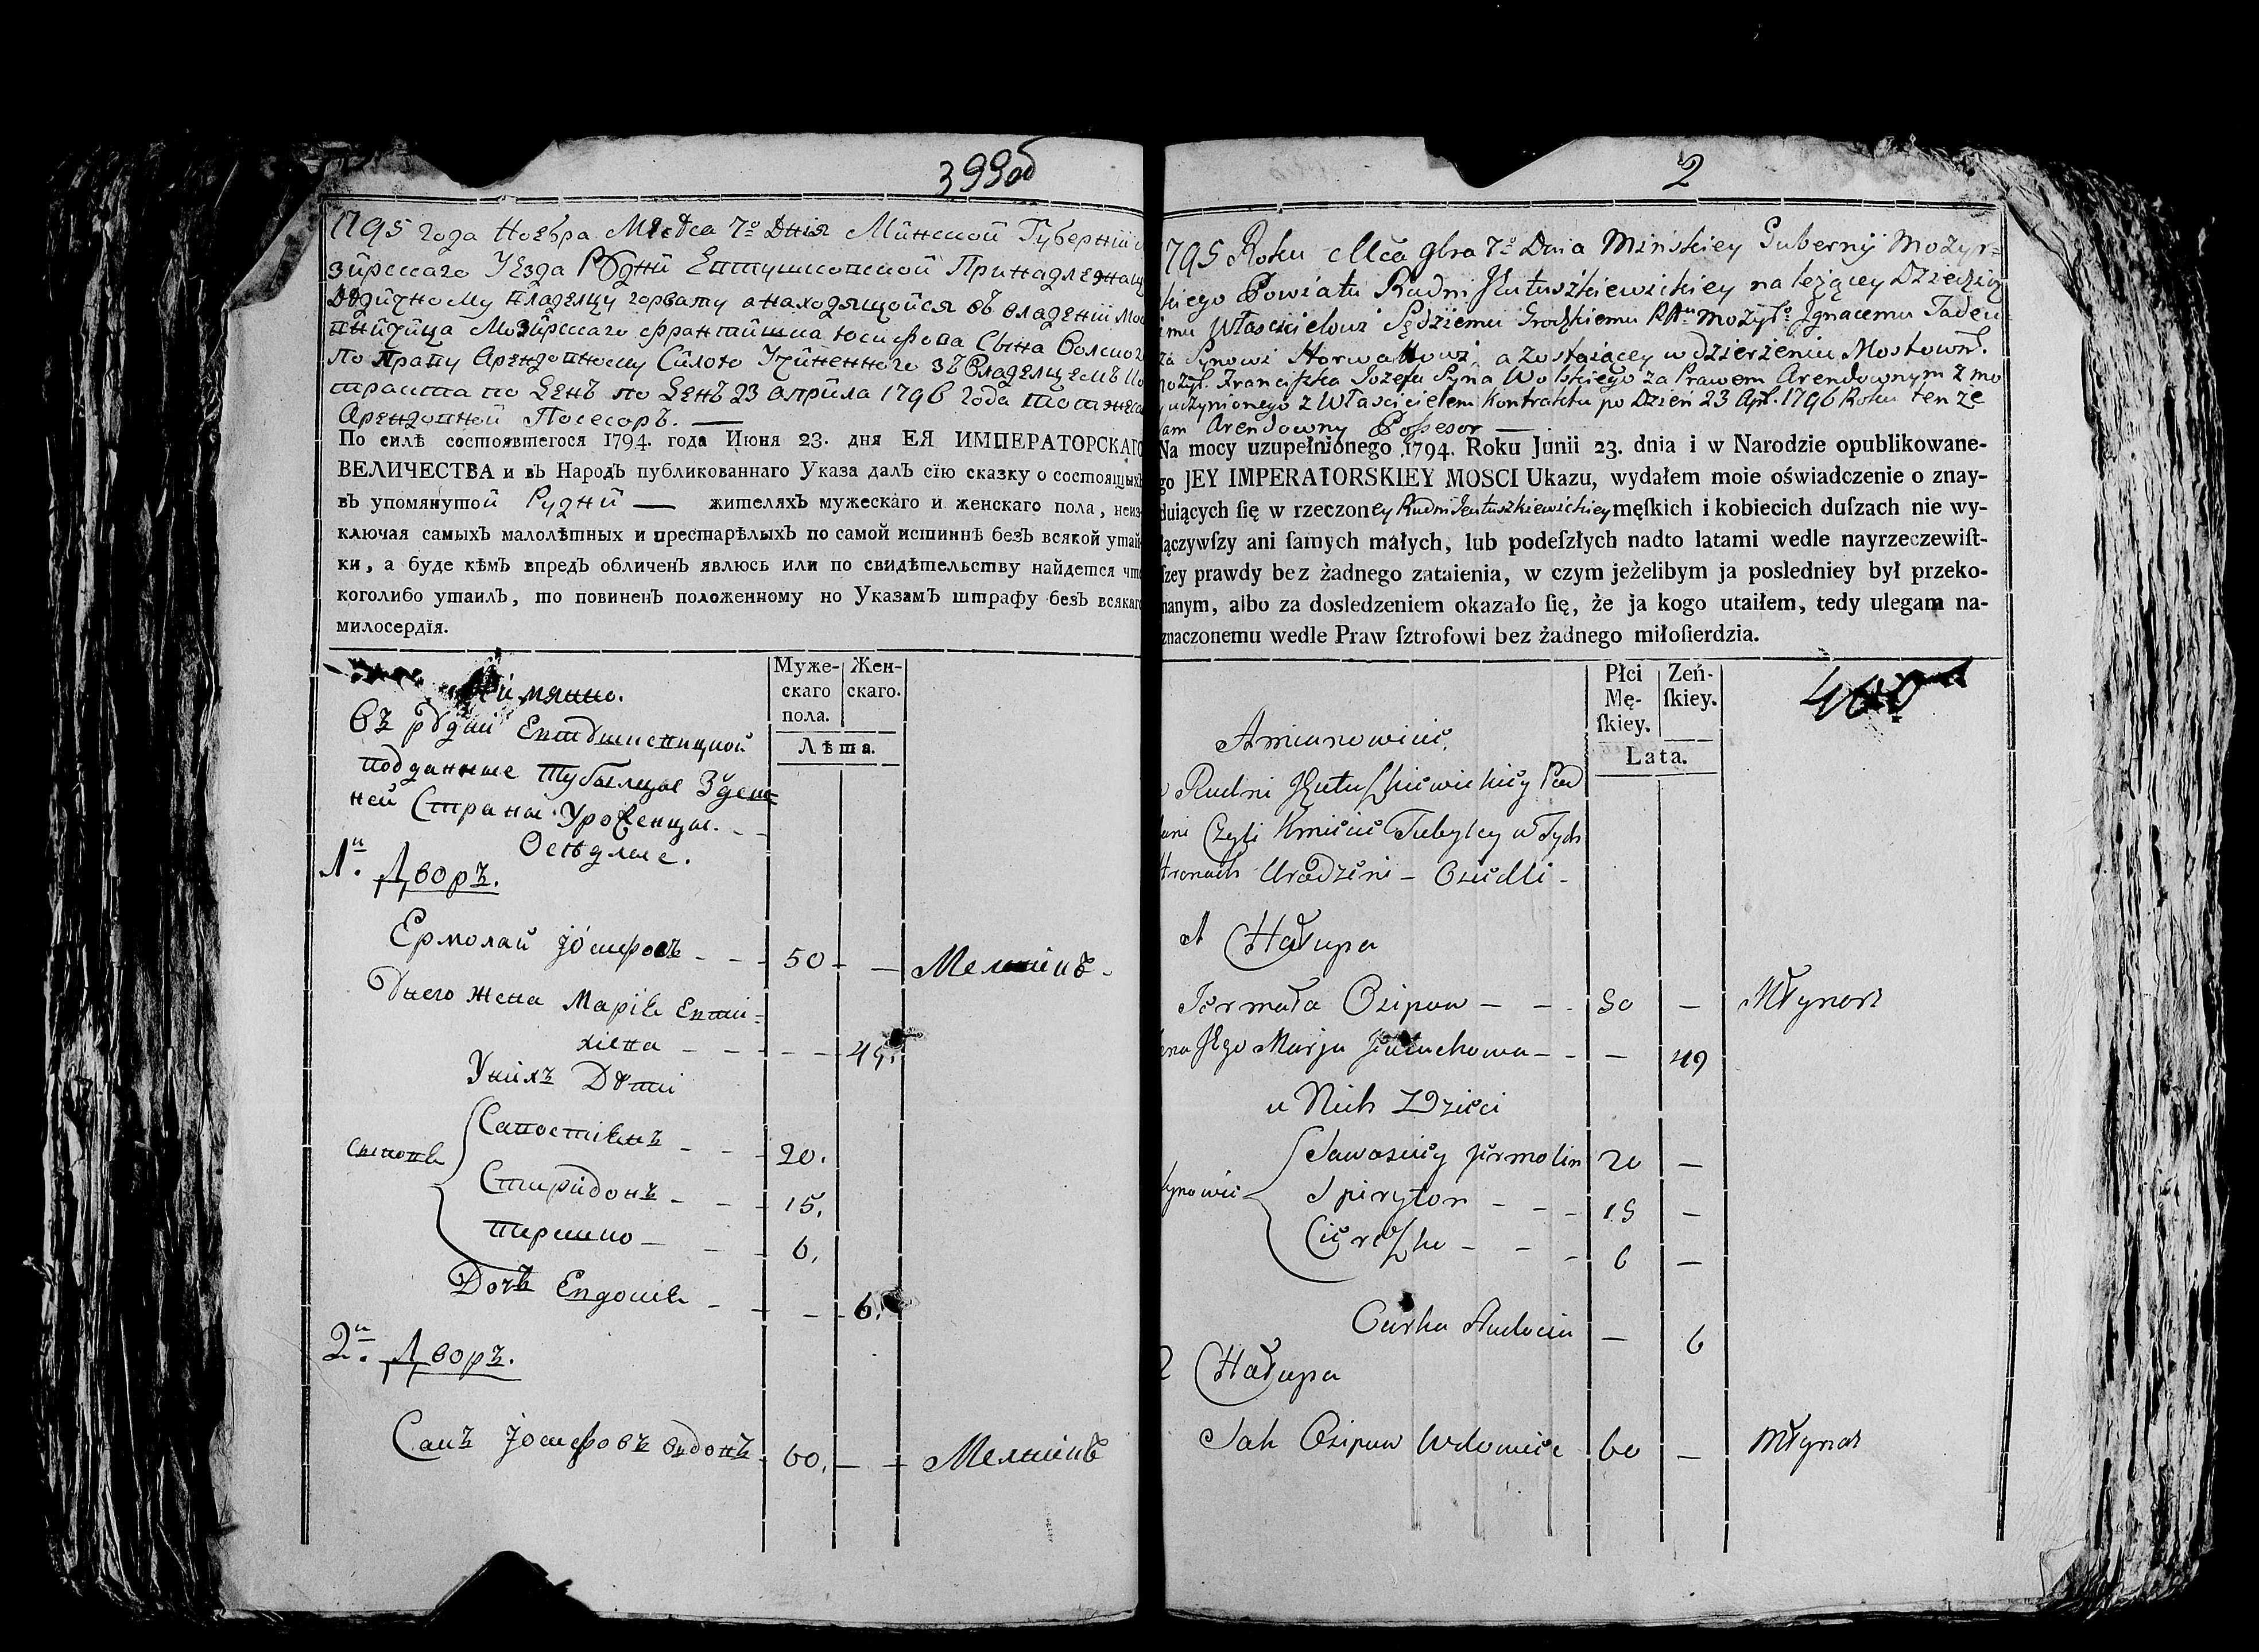 399об
1795 года Ноебра М-ца 7го Дня Минской Губерніи
зирскаго Уезда Рудни Евтушковской Принадлежащ
Дедичному владелцу горвату а находящойся въ владеніи Мос
внйчица Мозирскаго Францишка Юсифова Сына Волског
По праву Арендовному Силою Учйненного зъ Владелцемъ Ко
тракта по День по День 23 априла 1796 года тотже
Арендовной Посесоръ. —
По силѣ состоявшегося 1794. года Июня 23. дня ЕЯ ИМПЕРАТОРСКАГО
ВЕЛИЧЕСТВА и въ Народъ публикованнаго Указа далъ сїю сказку о состоящыхъ
въ упомянутой Рудни — жителяхъ мужескаго и женскаго пола, неиз-
ключая самыхъ малолѣтных и престарѣлыхъ по самой истиннѣ безъ всякой утай-
ки, а буде кѣмъ впредъ обличенъ явлюсь или по свидѣтельству найдется что
коголибо утаилъ, то повиненъ положенному но Указамъ штрафу безъ всякаго
милосердїя.
Муже-
скаго
пола.
Жен-
скаго.
Лѣта.
имянно.
въ рудни Евтушкевицкой
подданные тубылцы Здеш
ней Страны Уроженцы. - -
Оседлые.
1й. Дворъ.
Ермолай Іосифовъ - - - 50 - — Мелникъ -
У него жена Марія Евти-
хіева - - - - - 49.
У нихъ Дети
Сыновя
Савостіянъ - - - 20.
Спиридонъ - - - 15.
терешко - - - 6.
Дочъ Евдокія - - - 6.
2й. Дворъ.
Сакъ Іосифовъ вдовъ 60. - - Мелникъ
2
1795 Roku Mca 9bra 7o Dnia Minskiey Gubernij Mozyr=
kiego Powiatu Rudni Jeutuszkiewickiey należącey Dziedzicz
emu Włascicielowi Sędziemu Grodzkiemu Pttu Mozyrgo Ignacemu Tadeu
za Synowi Horwattowi, a zostaiącey w dzierżeniu Mostown.
Mozyr. Franciszka Jozefa Syna Wolskiego za Prawem Arendownym z mo
y uczynionego z Włascicielem Kontraktu po Dzien 23 Apr. 1796 Roku ten ze
sam Arendowny Possesor —
Na mocy uzupełnionego 1794. Roku Junii 23. dnia i w Narodzie opublikowane-
go JEY IMPERATORSKIEY MOSCI Ukazu, wydałem moie oświadczenie o znay-
duiących ſię w rzeczoney Rudni Jeutuszkiewickiey męſkich i kobiecich duſzach nie wy-
łączywſzy ani ſamych małych, lub podeſzłych nadto latami wedle nayrzeczewiſt-
ſzey prawdy bez żadnego zataienia, w czym jeżelibym ja posledniey był przeko-
nanym, albo za dosledzeniem okazało ſię, że ja kogo utaiłem, tedy ulegam na-
znaczonemu wedle Praw ſztrofowi bez żadnego miłoſierdzia.
Płci
Mę-
ſkiey.
Zeń-
ſkiey.
Lata.
400
Amianowicie.
Rudni Jeutuszkiewickiey Pod
dani Czyli Kmiecie Tubylcy w Tych
Stronach Urodzeni - Osiedli -
1 Chałupa
Jermoła Osipow - - - 50 — Młynarz
żona Jego Marja Jeutuchowa - - — 49
u Nich Dzieci
Synowie
Sawosciey Jermolin 20 —
Spiryton - - - 15 —
Ciereszko - - - 6 —
Curka Audocia — 6
2 Chałupa
Sak Osipow Wdowiec 60 — Młynarz